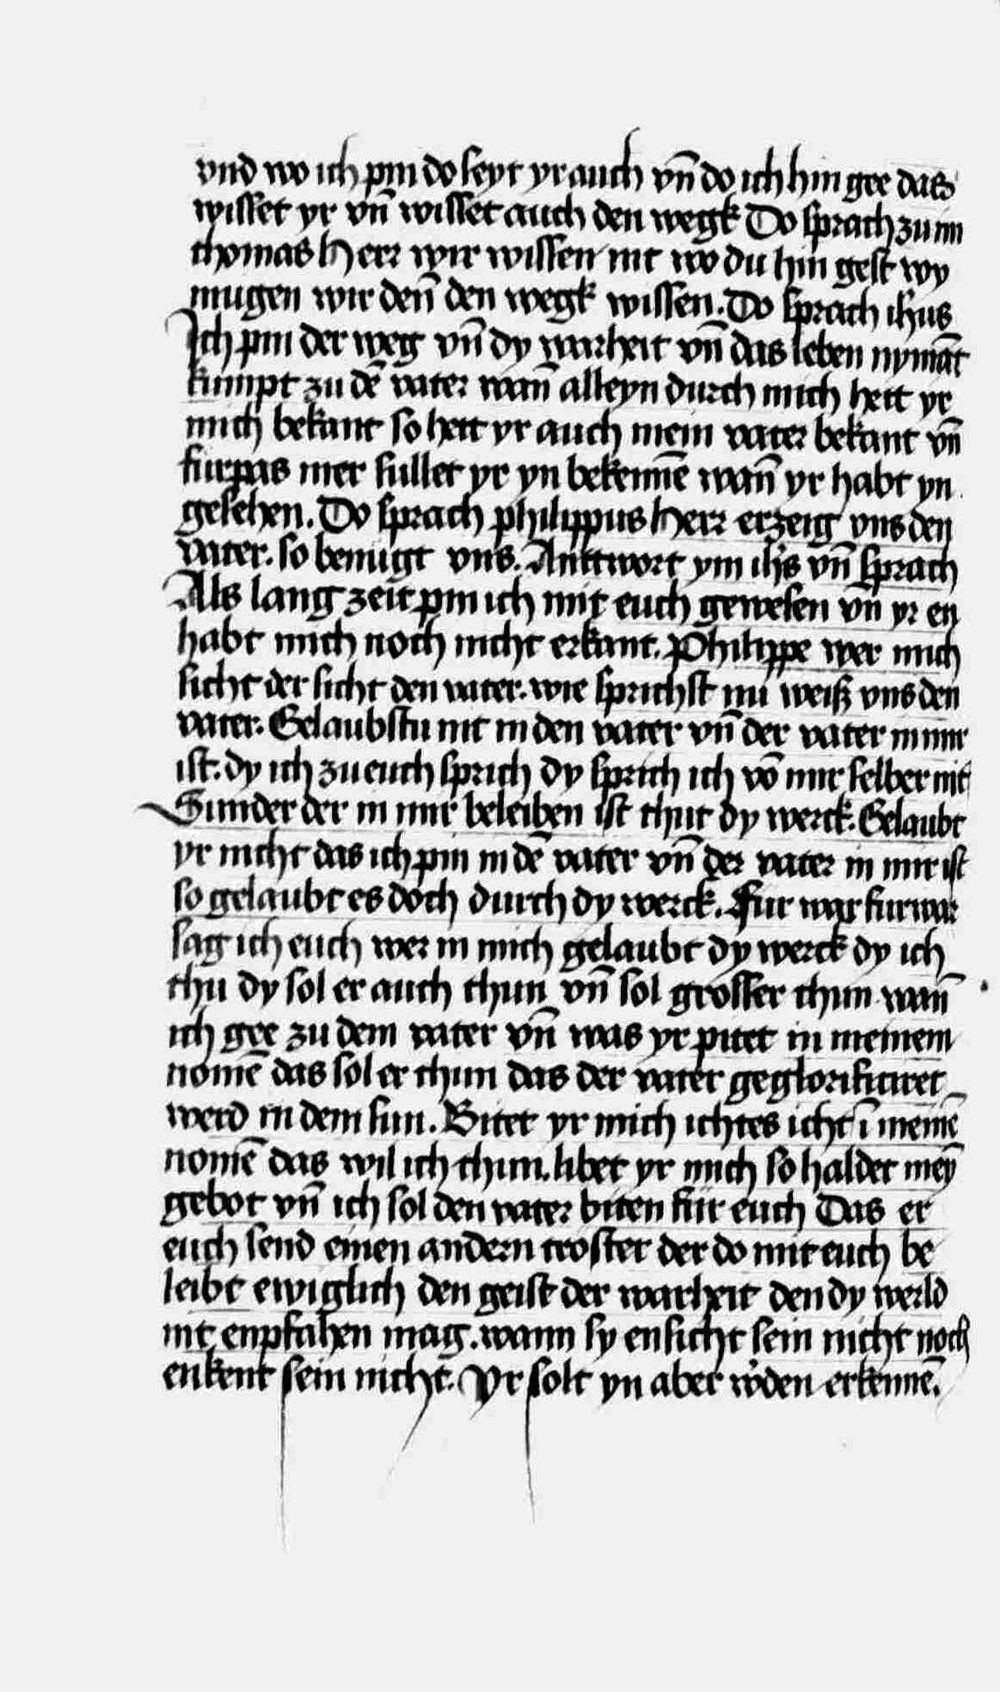 vnd wo ich pin do seyt yr auch vn̄ do ich hin gee das
wisset yr vn̄ wisset auch den wegk Do sprach zu im
thomas Herr wir wissen nit wo du hin gest wy
mugen wir den̄ den wegk wissen. Do sprach ih̄us
Ich pin der weg vn̄ dy warheit vn̄ das leben nymāt
kumpt zu dē vater wan̄ alleyn durch mich hett yr
mich bekant so hett yr auch mein vater bekant vn̄
furpas mer sullet yr yn bekennē wan̄ yr habt yn
gesehen. Do sprach philippus Herr erzeig vns den
vater. so benugt vns. Anttwort ym ih̄s vn̄ sprach
Als lang zeit pin ich mit euch gewesen vn̄ yr en
habt mich noch nicht erkant. Philippe wer mich
sicht der sicht den vater. wie sprichst nu weiß vns den
vater. Gelaubstu nit in den vater vn̄ der vater in mir
ist. dy ich zu euch sprich dy sprich ich vō mir selber nit
Sunder der in mir beleiben ist thut dy werck. Gelaubt
yr nicht das ich pin in dē vater vn̄ der vater in mir ist
so gelaubt es doch durch dy werck. Fur war fur war
sag ich euch wer in mich gelaubt dy werck dy ich
thu dy sol er auch thun vn̄ sol grosser thun wan̄
ich gee zu dem vater vn̄ was yr pitet in meinem
nomē das sol er thun das der vater geglorificiret
werd in dem sun. Bitet yr mich ichtes icht ī meinē
nomē das wil ich thun. libet yr mich so haldet meȳ
gebot vn̄ ich sol den vater biten für euch Das er
euch send einen andern troster der do mit euch be
leibt ewiglich den geist der warheit den dy werld
nit enpfahen mag. wann sy ensicht sein nicht noch
enkent sein nicht. Yr solt yn aber w̓den erkennē.